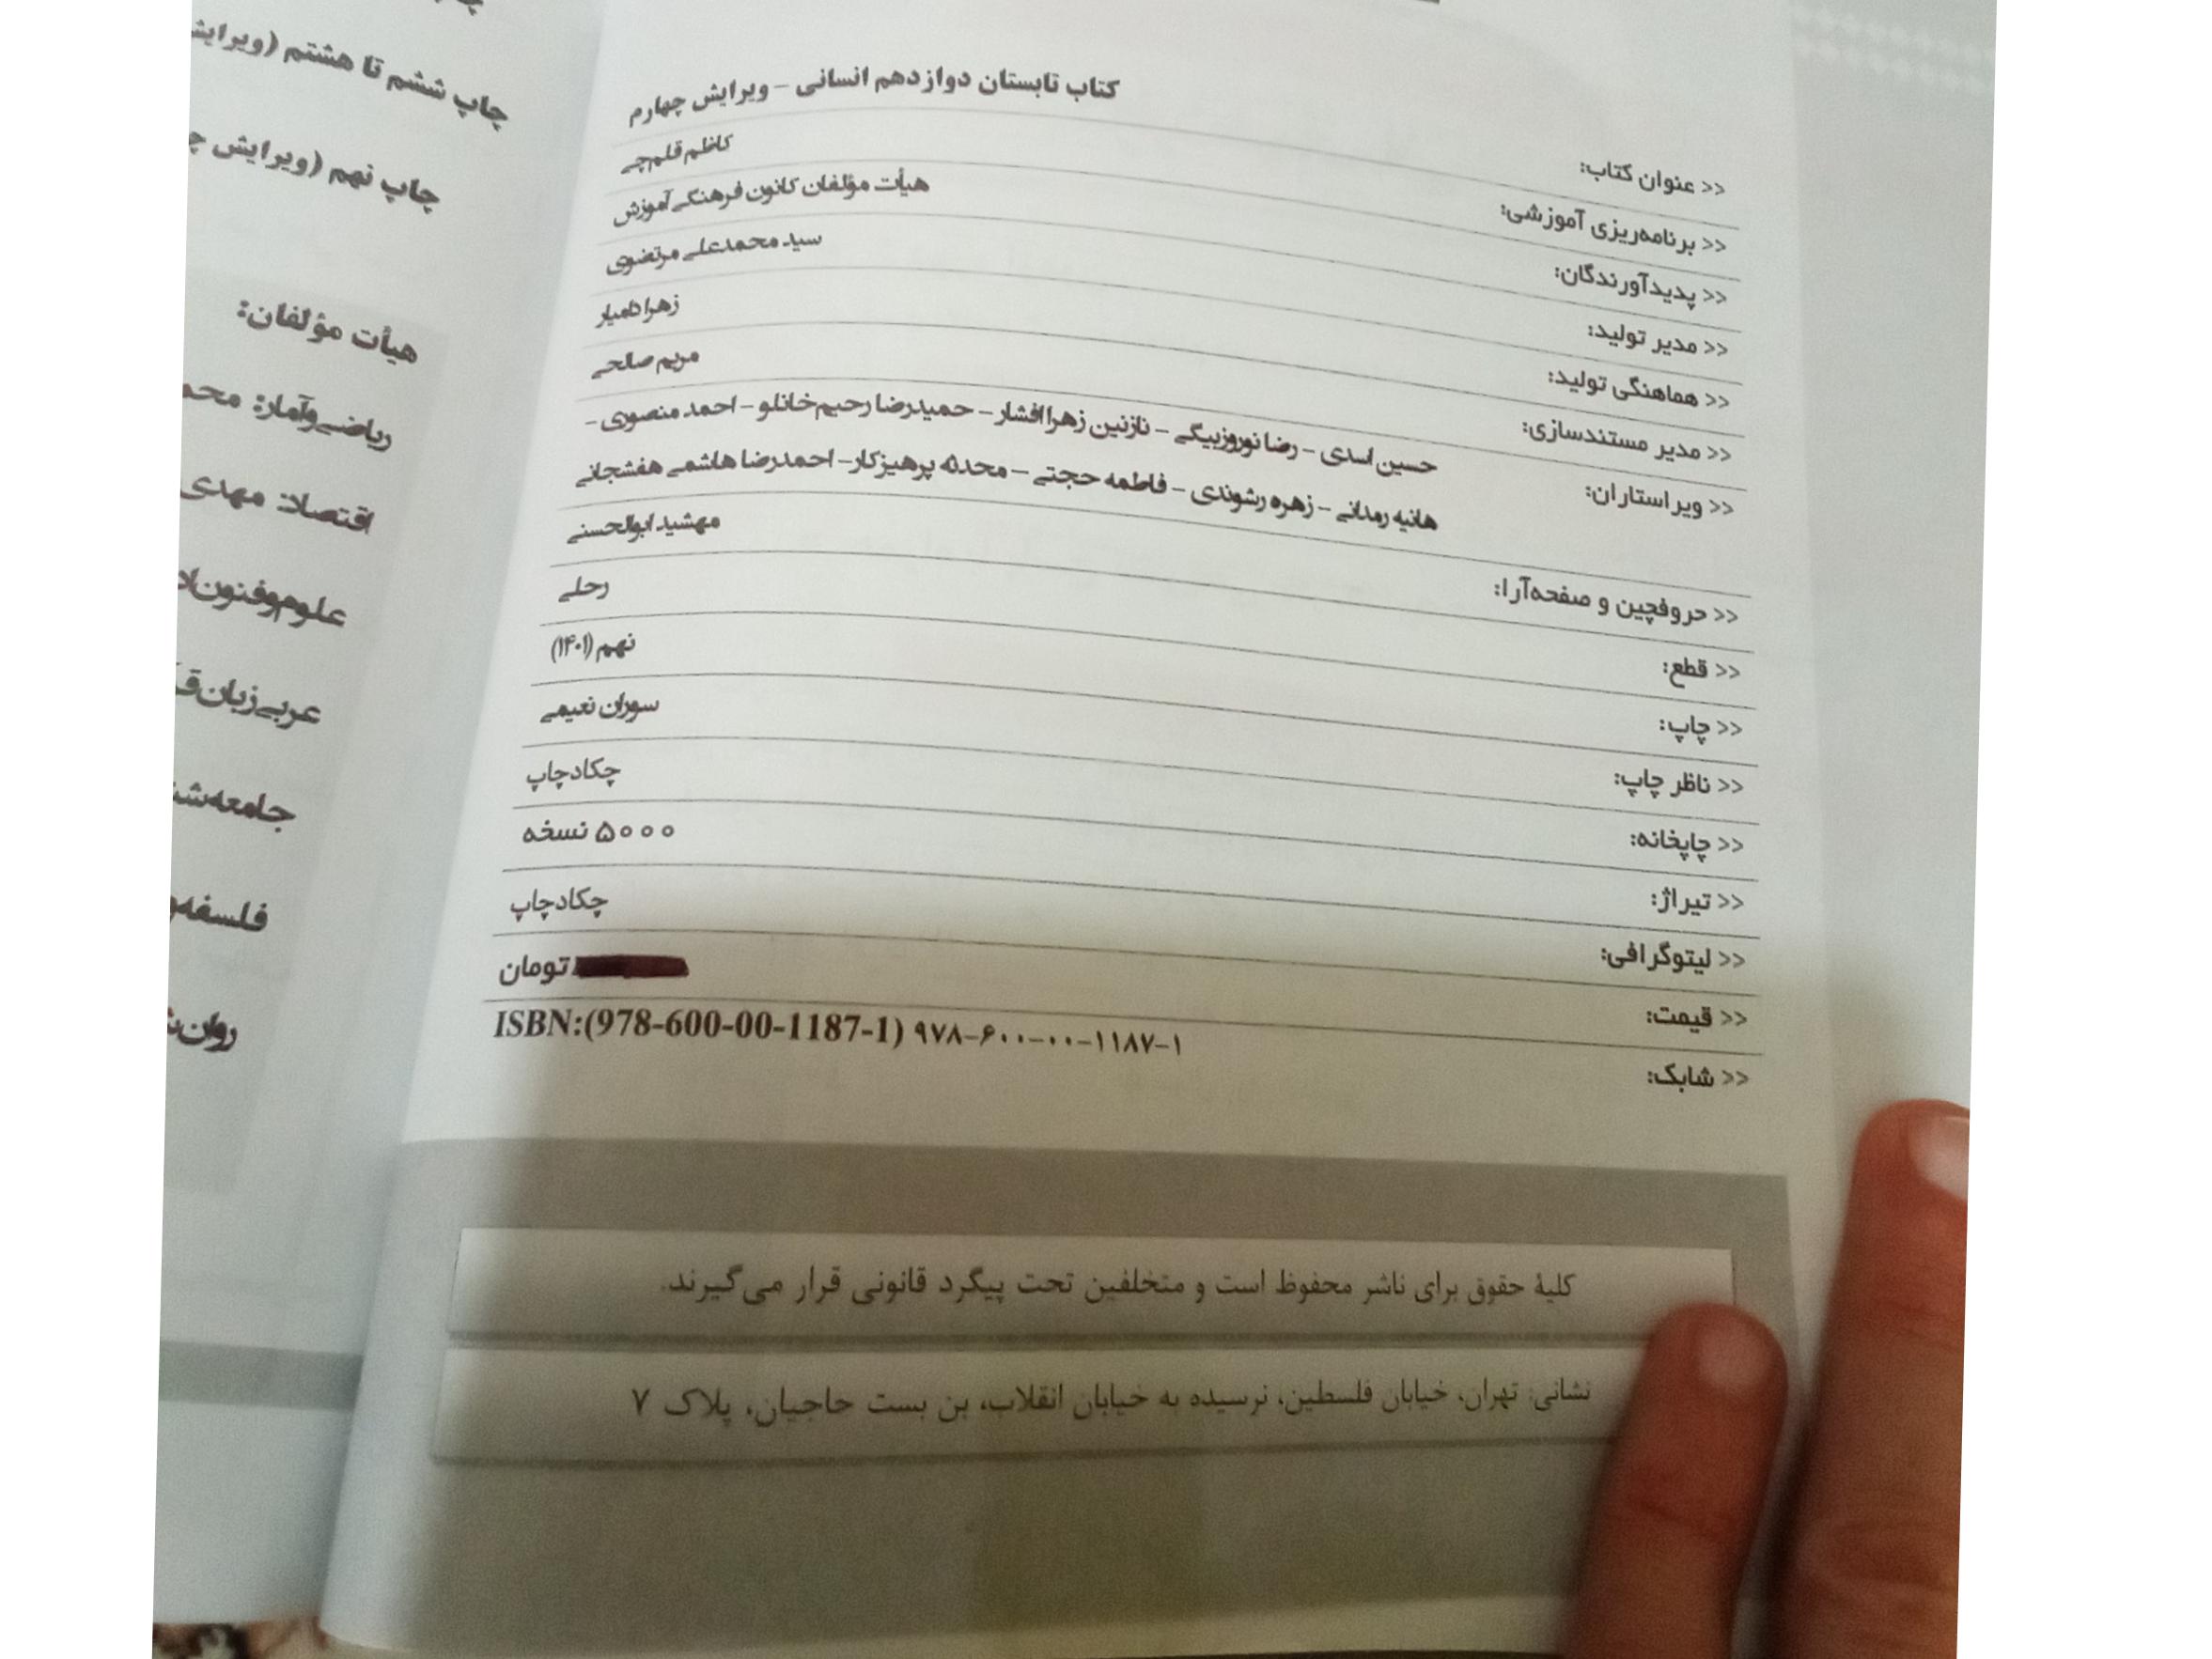 << عنوان کتاب: کتاب تابستان دوازدهم انسانی - ویرایش چهارم
<< برنامه‌ریزی آموزشی: کاظم قلم‌چی
<< پدیدآورندگان: هیأت مؤلفان کانون فرهنگی آموزش
<< مدیر تولید: سید محمدعلی مرتضوی
<< هماهنگی تولید: زهرا دامیار
<< مدیر مستندسازی: مریم صالحی
<< ویراستاران: حسین اسدی - رضا نوروزبیگی - نازنین زهرا افشار - حمیدرضا رحیم‌خانلو - احمد منصوری -
هانیه رمدانی - زهره رشوندی - فاطمه حجتی - محدثه پرهیزکار - احمدرضا هاشمی هفشجانی
<< حروفچین و صفحه‌آرا: مهشید ابوالحسنی
<< قطع: رحلی
<< چاپ: نهم (۱۴۰۱)
<< ناظر چاپ: سوران نعیمی
<< چاپخانه: چکاد چاپ
<< تیراژ: ۵۰۰۰ نسخه
<< لیتوگرافی: چکاد چاپ
<< قیمت: تومان
<< شابک: ISBN:(978-600-00-1187-1) ۹۷۸-۶۰۰-۰۰-۱۱۸۷-۱
کلیهٔ حقوق برای ناشر محفوظ است و متخلفین تحت پیگرد قانونی قرار می‌گیرند.
نشانی: تهران، خیابان فلسطین، نرسیده به خیابان انقلاب، بن بست حاجیان، پلاک ۷
چاپ ششم تا هشتم
چاپ نهم (ویرایش
هیأت مؤلفان:
ریاضی و آمار:
اقتصاد: مهدی
علوم و فنون
عربی زبان